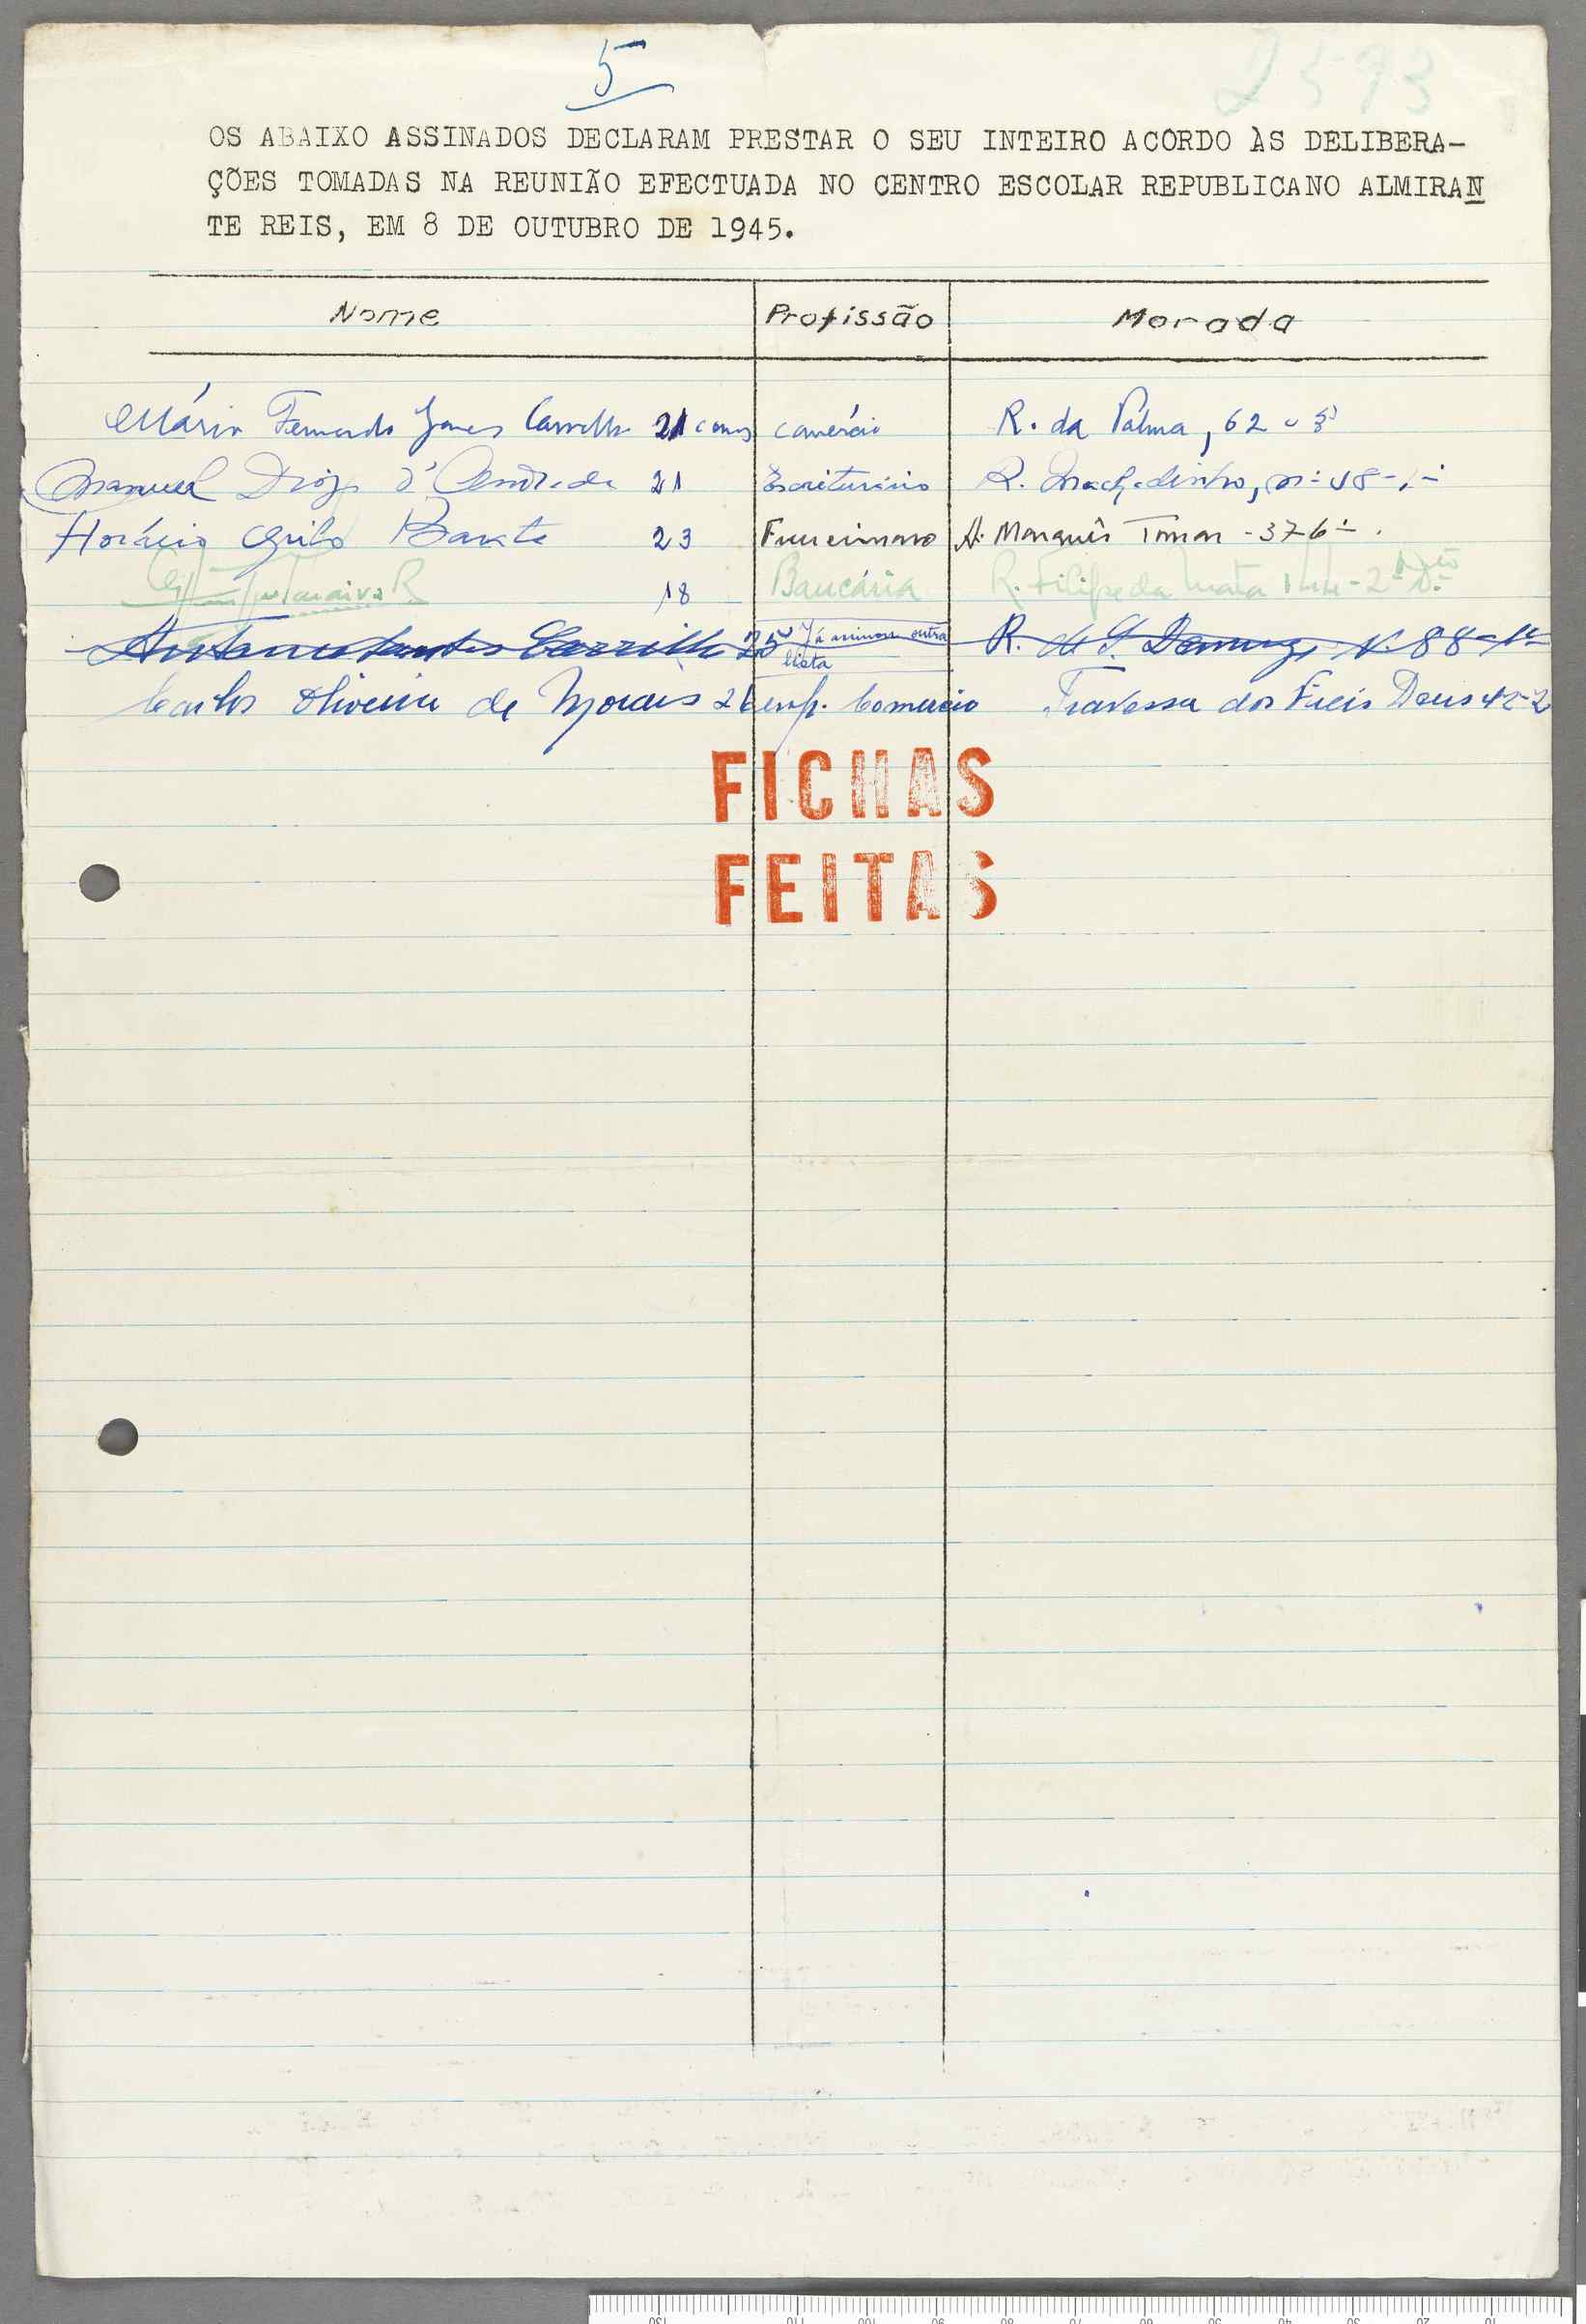 5
2593
OS ABAIXO ASSINADOS DECLARAM PRESTAR O SEU INTEIRO ACORDO ÀS DELIBERA-
ÇÕES TOMADAS NA REUNIÃO EFECTUADA NO CENTRO ESCOLAR REPUBLICANO ALMIRAN
TE REIS, EM 8 DE OUTUBRO DE 1945.
Nome Profissão Morada
Mário Fernando Gomes Carvalho 21 anos comércio R. da Palma, 62
Manuel Diogo d'Andrade 21 Escriturário R. Machadinho, nº 18-1º
Horácio Grilo Barata 23 Funcionario A. Marquês Tomar - 37-6º.
18 Bancária R. Filipe da Mata 2º
25 Já assinou outra R. de S. Domingos N. 88-1º
lista
Carlos Oliveira de Morais 21 emp. Comercio Travessa dos Fieis Deus 42-2
FICHAS
FEITAS